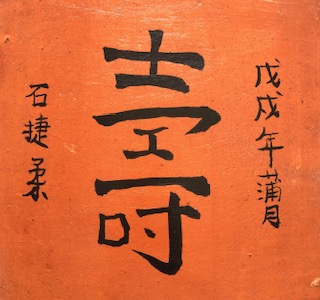 戊戌年蒲月
壽
石捷柔